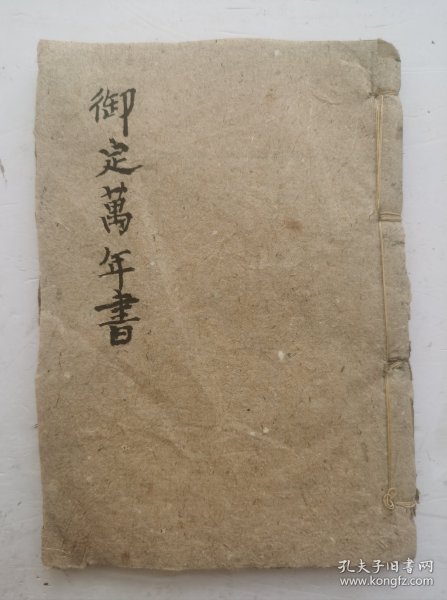 御定萬年書
孔夫子旧书网
www.kongfz.com